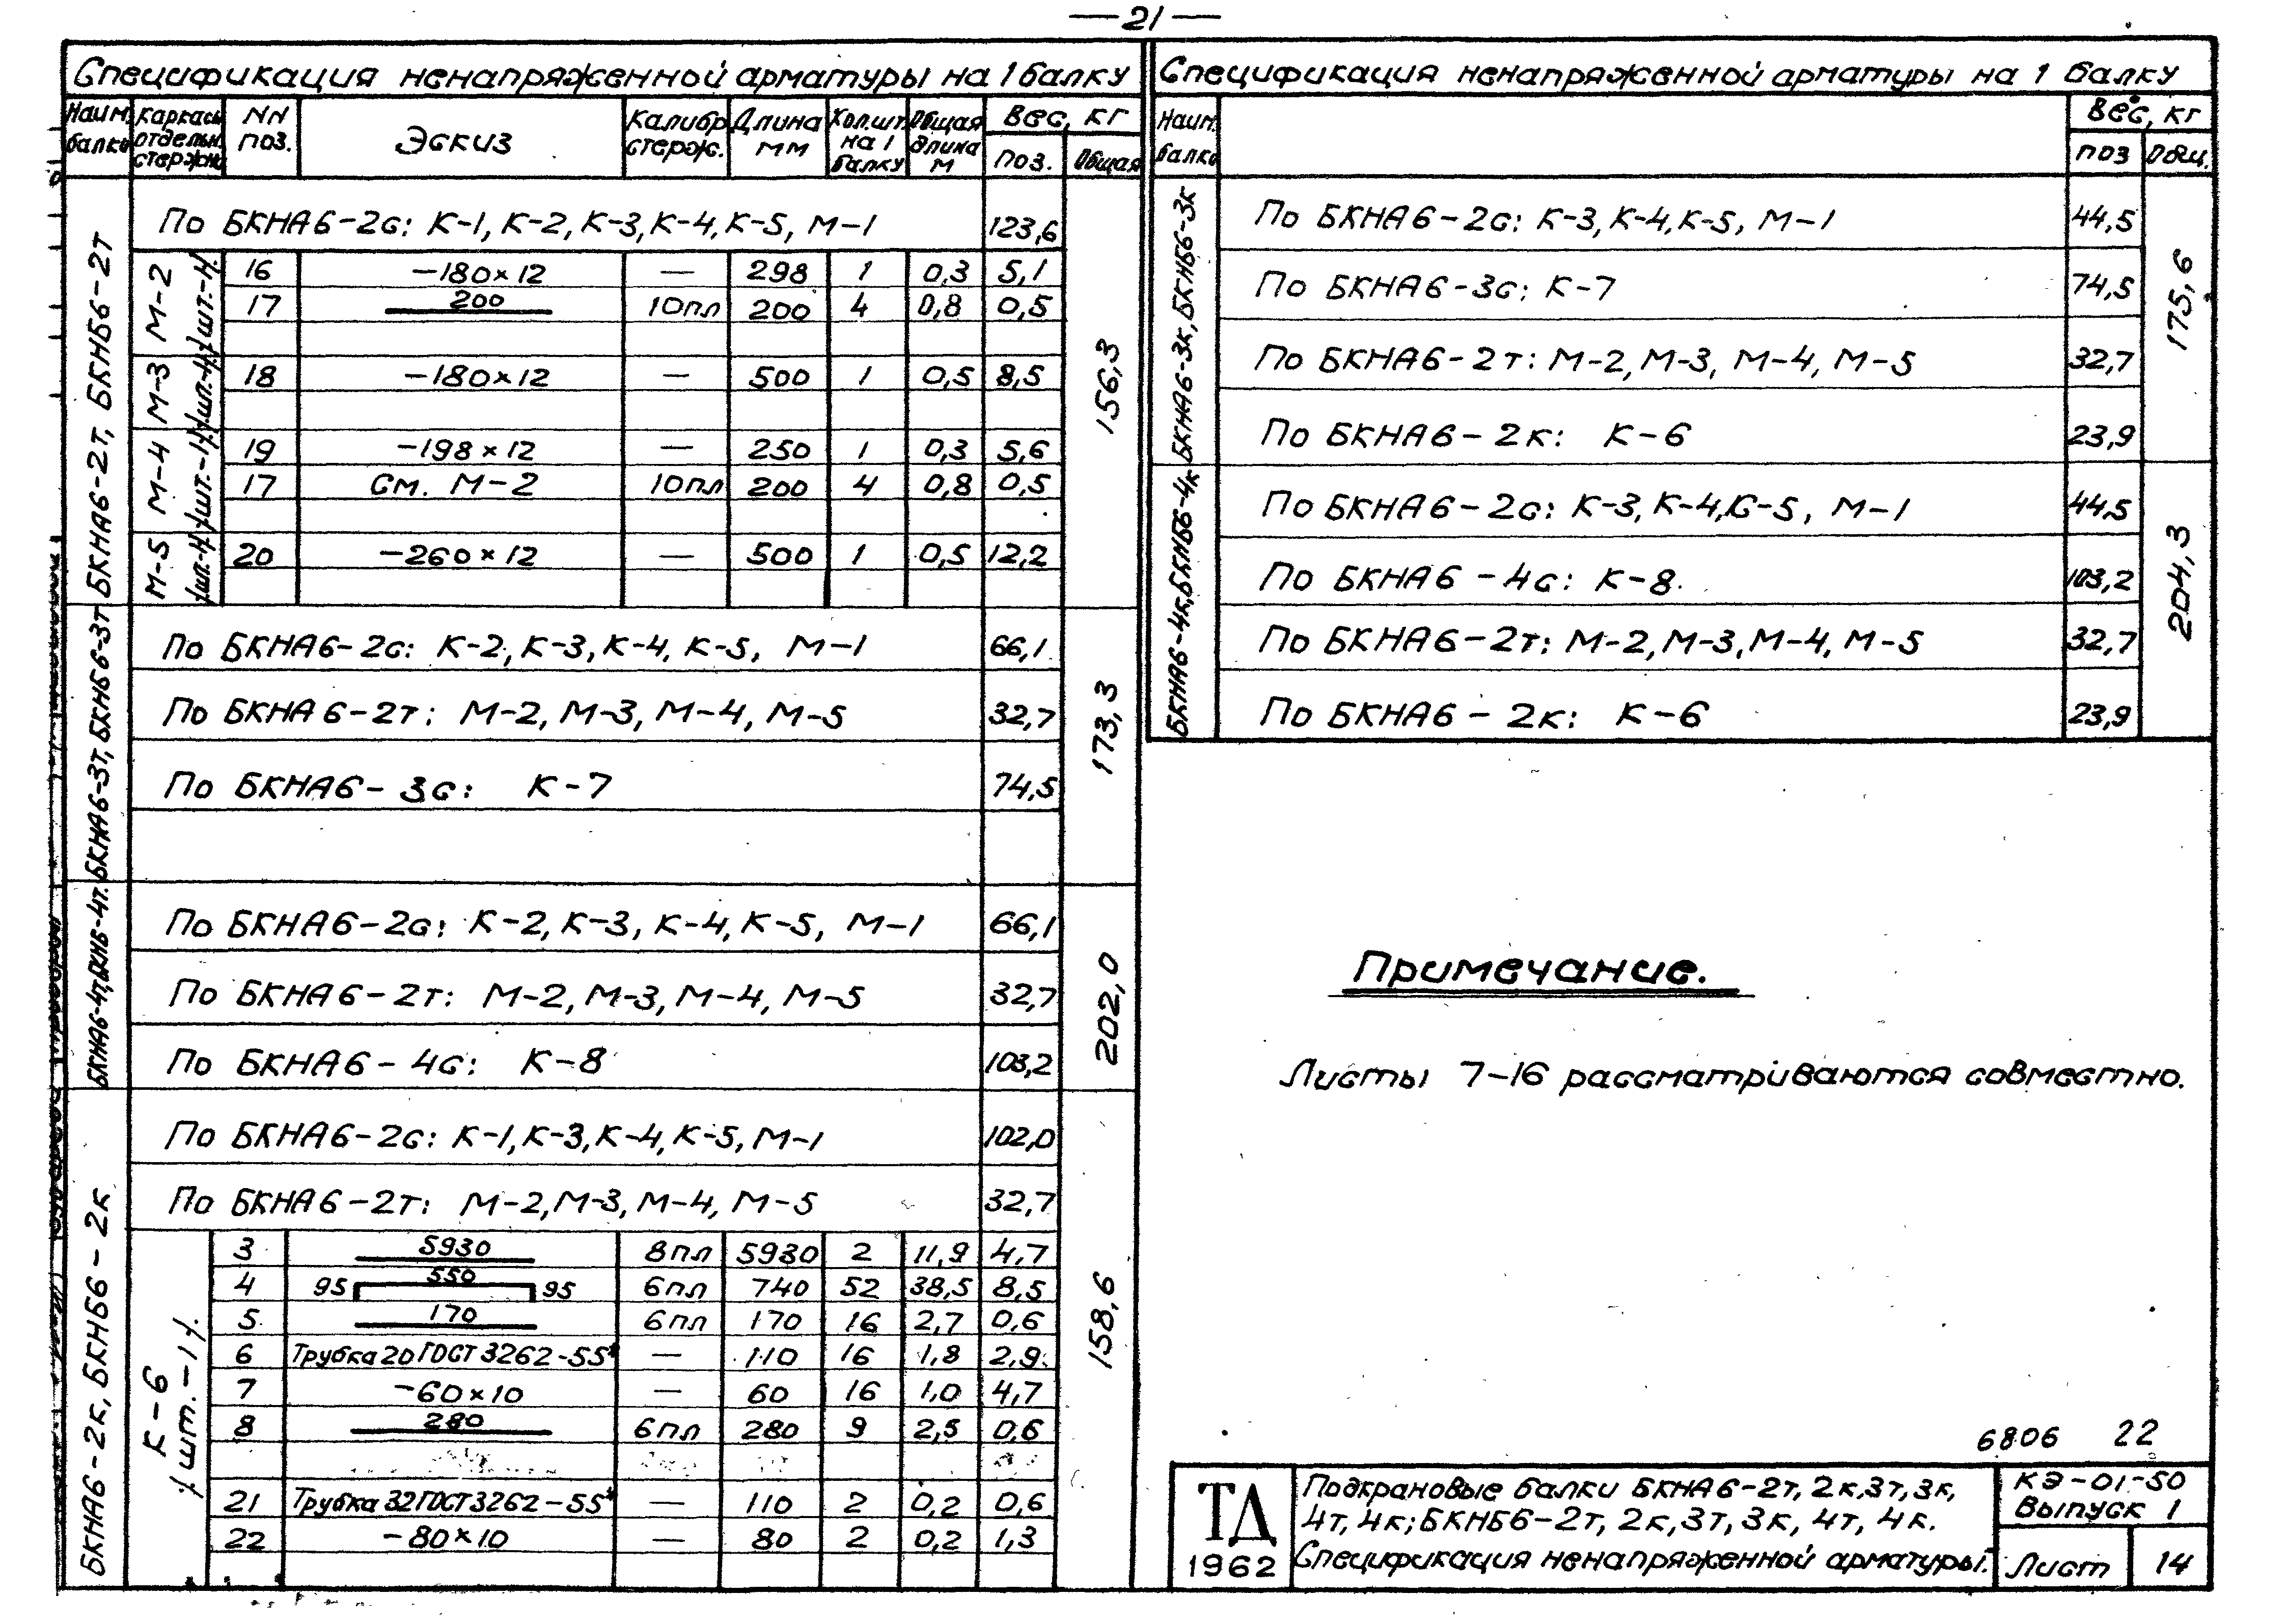 — 21 —
Спецификация ненапряженной арматуры на 1 балку
Наим. балко
Каркасы отдельн. стержни
NN поз.
Эскиз
Калибр стерж.
Длина мм
Кол.шт. на 1 балку
Общая длина м
Вес, кг
поз.
Общая
БКНА6-2т, БКНБ6-2т
По БКНА6-2с: К-1, К-2, К-3, К-4, К-5, М-1 123,6
156,3
М-2 /шт.-1/
16 -180×12 — 298 1 0,3 5,1
17 200 10пл 200 4 0,8 0,5
М-3 /шт.-1/
18 -180×12 — 500 1 0,5 8,5
М-4 /шт.-1/
19 -198×12 — 250 1 0,3 5,6
17 См. М-2 10пл 200 4 0,8 0,5
М-5 /шт.-1/
20 -260×12 — 500 1 0,5 12,2
БКНА6-3т, БКНБ6-3т
По БКНА6-2с: К-2, К-3, К-4, К-5, М-1 66,1
По БКНА6-2т: М-2, М-3, М-4, М-5 32,7
По БКНА6-3с: К-7 74,5
173,3
БКНА6-4т, БКНБ-4т.
По БКНА6-2с: К-2, К-3, К-4, К-5, М-1 66,1
По БКНА6-2т: М-2, М-3, М-4, М-5 32,7
По БКНА6-4с: К-8 103,2
202,0
БКНА6-2к, БКНБ6-2к
По БКНА6-2с: К-1, К-3, К-4, К-5, М-1 102,0
По БКНА6-2т: М-2, М-3, М-4, М-5 32,7
158,6
К-6 /шт.-1/.
3 5930 8пл 5930 2 11,9 4,7
4 95 550 95 6пл 740 52 38,5 8,5
5 170 6пл 170 16 2,7 0,6
6 Трубка 20 ГОСТ 3262-55* — 110 16 1,8 2,9
7 -60×10 — 60 16 1,0 4,7
8 280 6пл 280 9 2,5 0,6
21 Трубка 32 ГОСТ 3262-55* — 110 2 0,2 0,6
22 -80×10 — 80 2 0,2 1,3
Спецификация ненапряженной арматуры на 1 балку
Наим. балко
Вес, кг
поз
Общ.
БКНА6-3к, БКНБ6-3к
По БКНА6-2с: К-3, К-4, К-5, М-1 44,5
По БКНА6-3с: К-7 74,5
По БКНА6-2т: М-2, М-3, М-4, М-5 32,7
По БКНА6-2к: К-6 23,9
175,6
БКНА6-4к, БКНБ6-4к
По БКНА6-2с: К-3, К-4, К-5, М-1 44,5
По БКНА6-4с: К-8. 103,2
По БКНА6-2т: М-2, М-3, М-4, М-5 32,7
По БКНА6-2к: К-6 23,9
204,3
Примечание.
Листы 7-16 рассматриваются совместно.
6806 22
ТД
1962
Подкрановые балки БКНА6-2т, 2к, 3т, 3к,
4т, 4к; БКНБ6-2т, 2к, 3т, 3к, 4т, 4к.
Спецификация ненапряженной арматуры.
КЭ-01-50
Выпуск 1
Лист 14